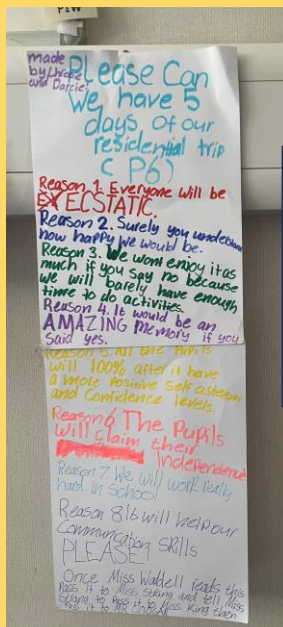 PTW
made
by Chrissie
and Darcie
Please Can
We have 5
days of our
residential trip
( P6)
Reason 1. Everyone will be
EX ECSTATIC.
Reason 2. Surely you understand
how happy we would be.
Reason 3. We wont enjoy it as
much if you say no because
we will barely have enough
time to do activities.
Reason 4. It would be an
AMAZING memory if you
said yes.
Reason 5. All the Pupils
will 100% after it have
a more Positive self asteem
and Confidence levels.
Reason 6 The Pupils
will claim their
Independence
Reason 7. We will work really
hard in School
Reason 8. It will help our
Communication Skills
PLEASE!
Once Miss Waddell reads this
Pass it to Miss Strang and tell Miss
Strang to Pass it to Miss King then
Pass it to